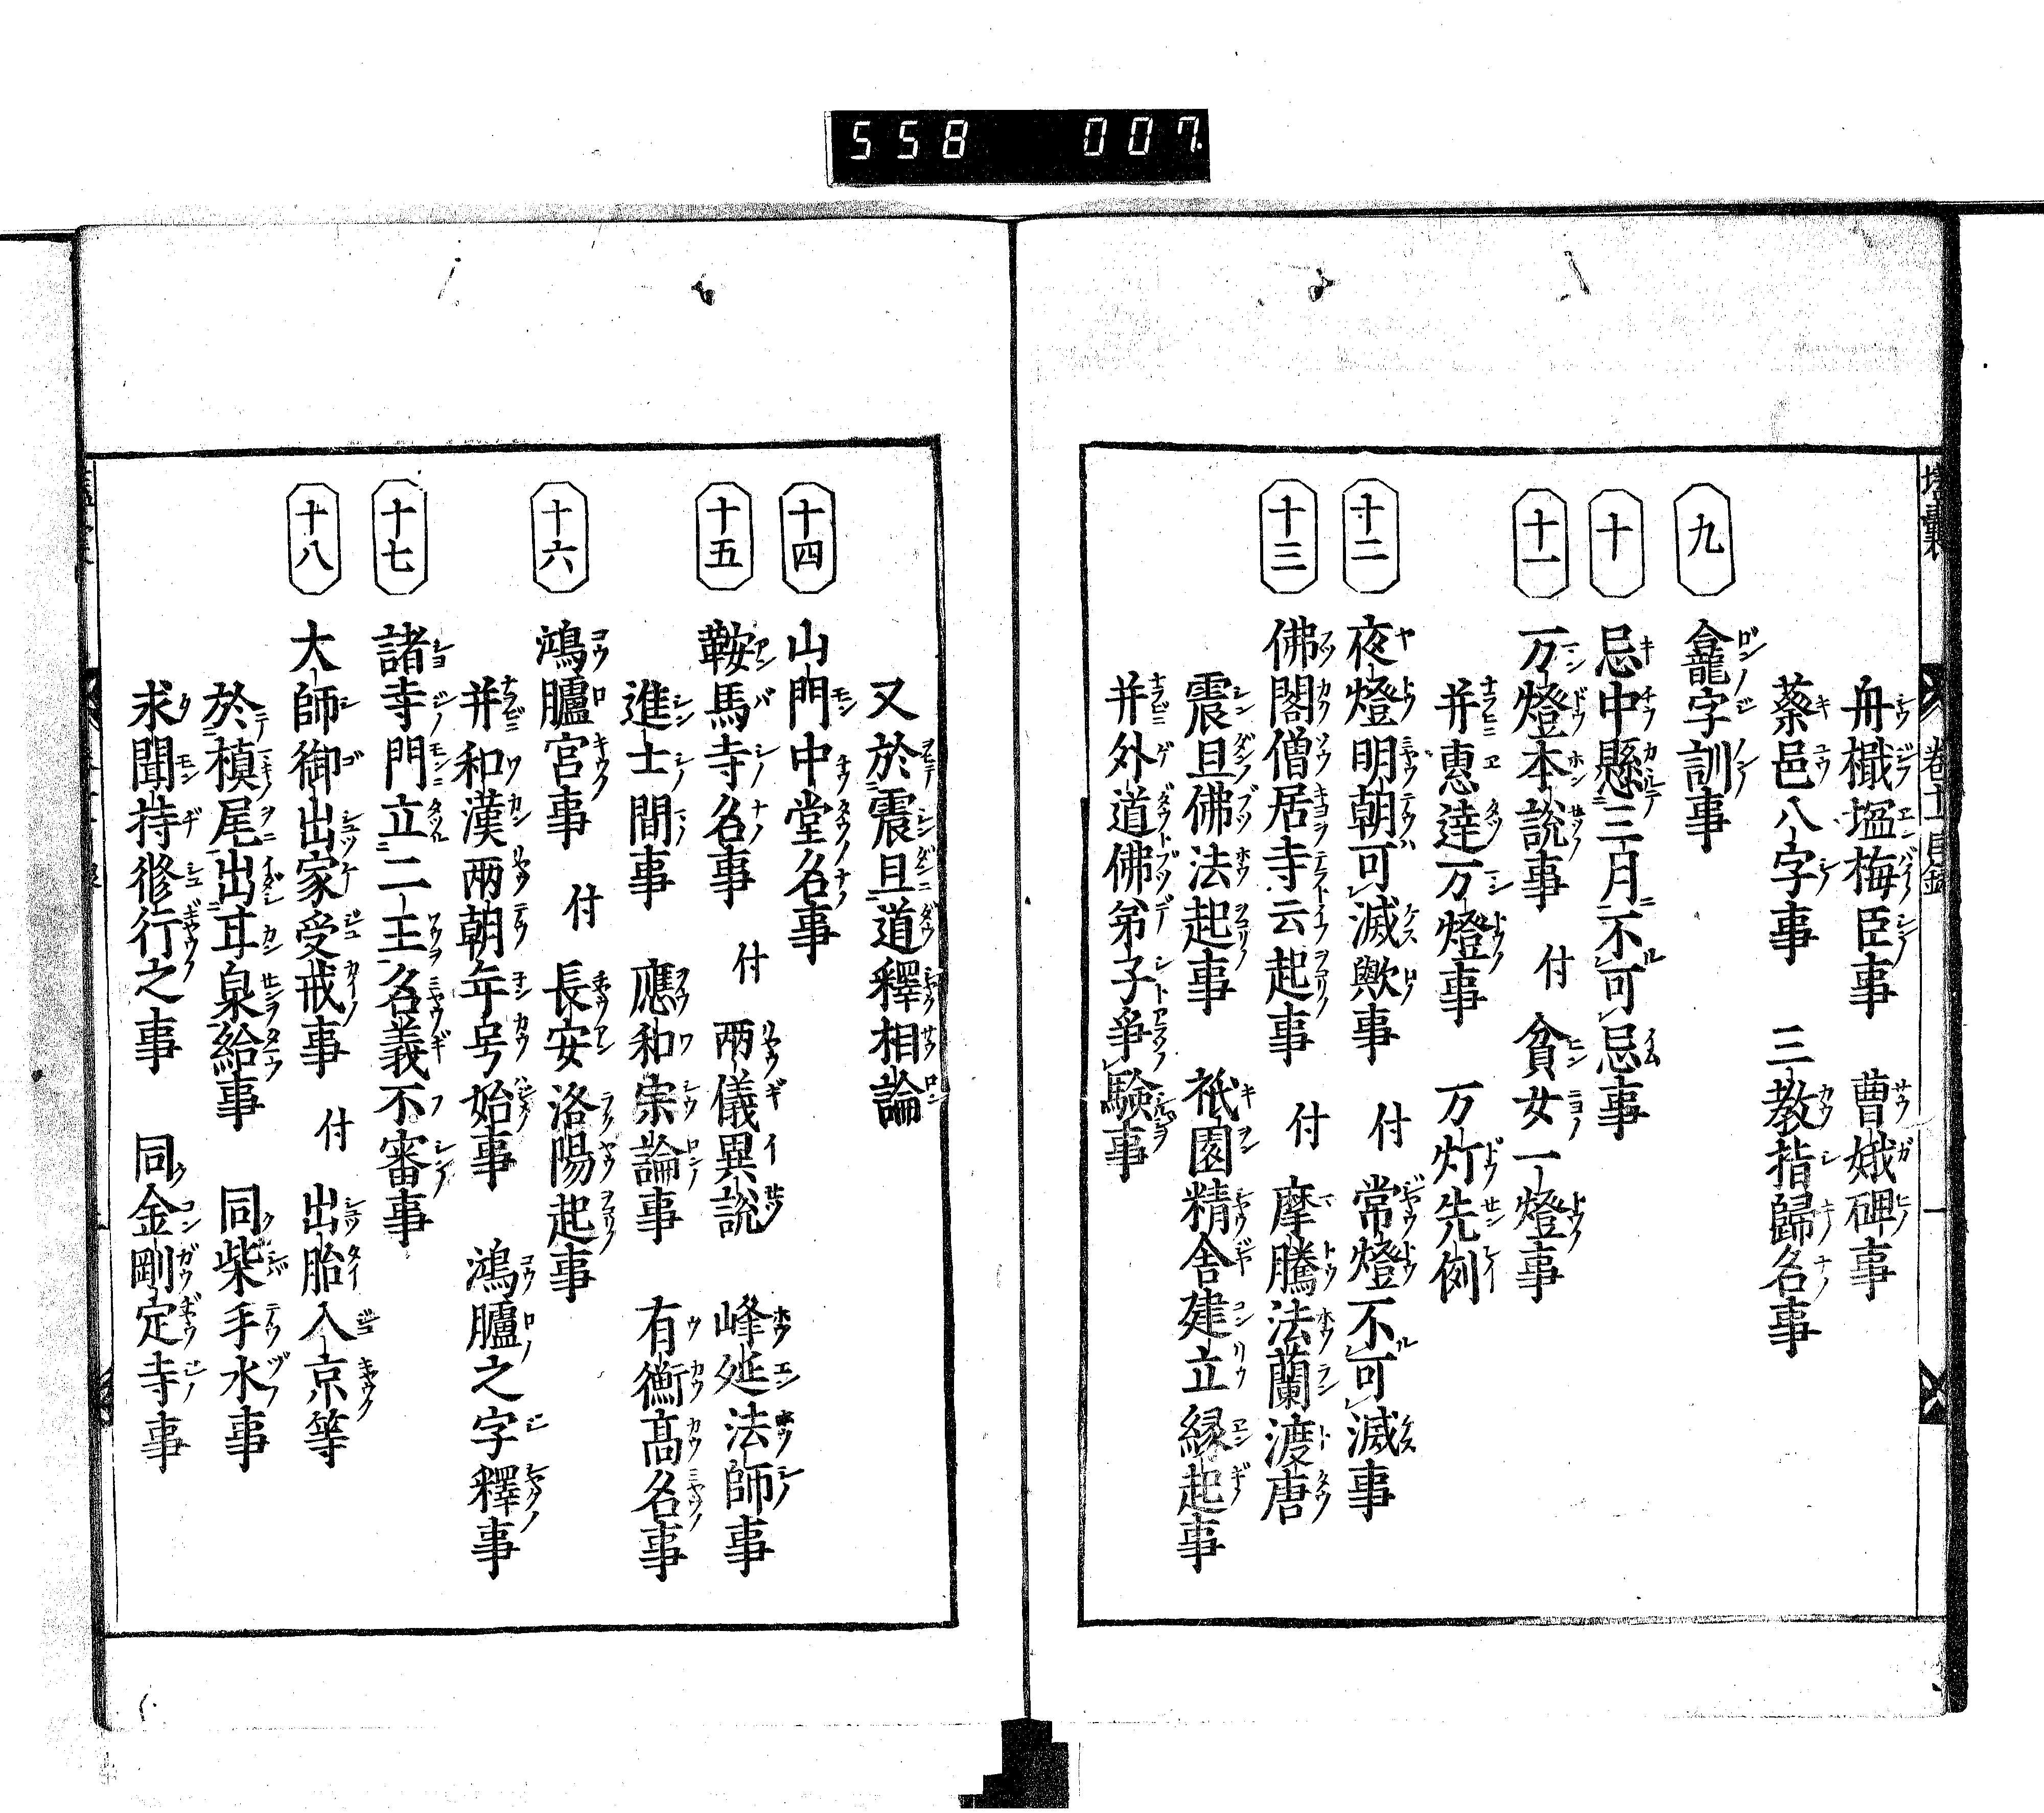 558 007
舟檝塩梅臣事 曹娥碑事
蔡邕八字事 三教指歸名事
九 龕字訓事
十 忌中懸三月不可忌事
十一 万燈本説事 付 貧女一燈事
并惠達万燈事 万灯先例
十二 夜燈明朝可滅歟事 付 常燈不可滅事
十三 佛閣僧居寺云起事 付 摩騰法蘭渡唐
震旦佛法起事 祇園精舍建立縁起事
并外道佛弟子爭驗事
又於震旦道釋相論
十四 山門中堂名事
十五 鞍馬寺名事 付 兩儀異説 峰延法師事
進士間事 應和宗論事 有衡高名事
十六 鴻臚宮事 付 長安洛陽起事
并和漢兩朝年号始事 鴻臚之字釋事
十七 諸寺門立二王名義不審事
十八 大師御出家受戒事 付 出胎入京等
於槙尾出甘泉給事 同柴手水事
求聞持修行之事 同金剛定寺事